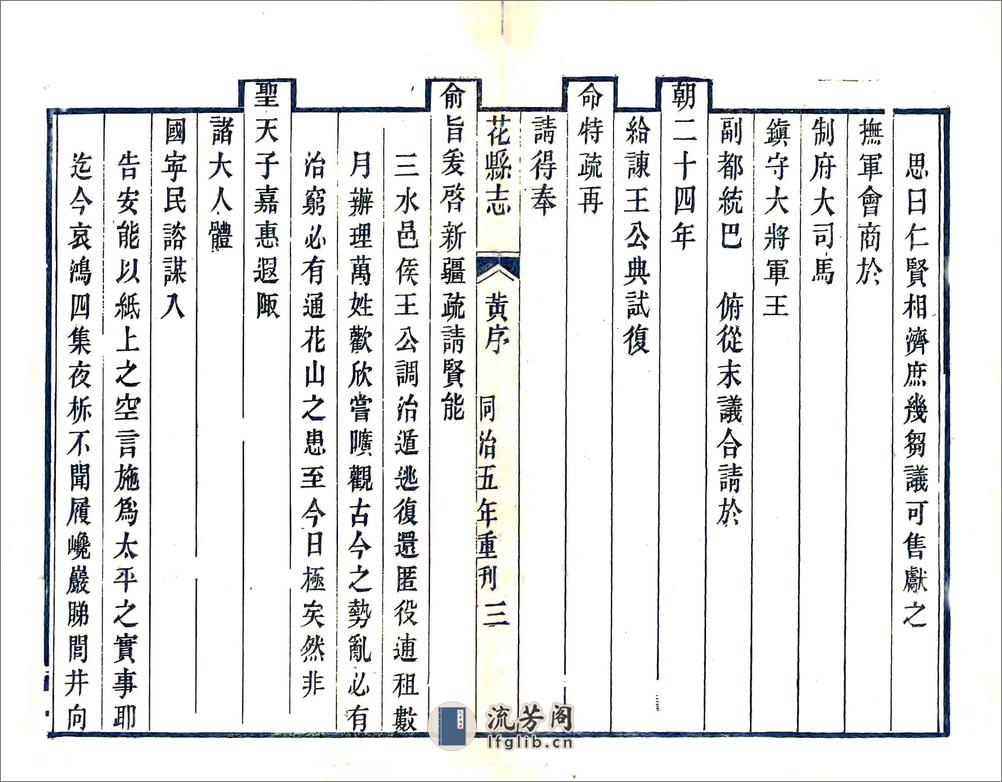 思曰仁賢相濟庶幾芻議可售獻之
撫軍會商於
制府大司馬
鎮守大將軍王
副都統巴　俯從末議合請於
朝二十四年
給諫王公典試復
命特疏再
請得奉
花縣志　黃序　同治五年重刊　三
俞旨爰啓新疆疏請賢能
三水邑侯王公調治遁逃復還匿役逋租數
月辦理萬姓歡欣嘗曠觀古今之勢亂必有
治窮必有通花山之患至今日極矣然非
聖天子嘉惠遐陬
諸大人體
國寧民諮謀入
告安能以紙上之空言施爲太平之實事耶
迄今哀鴻四集夜柝不聞履巉巖睇閭井向
流芳阁
lfglib.cn